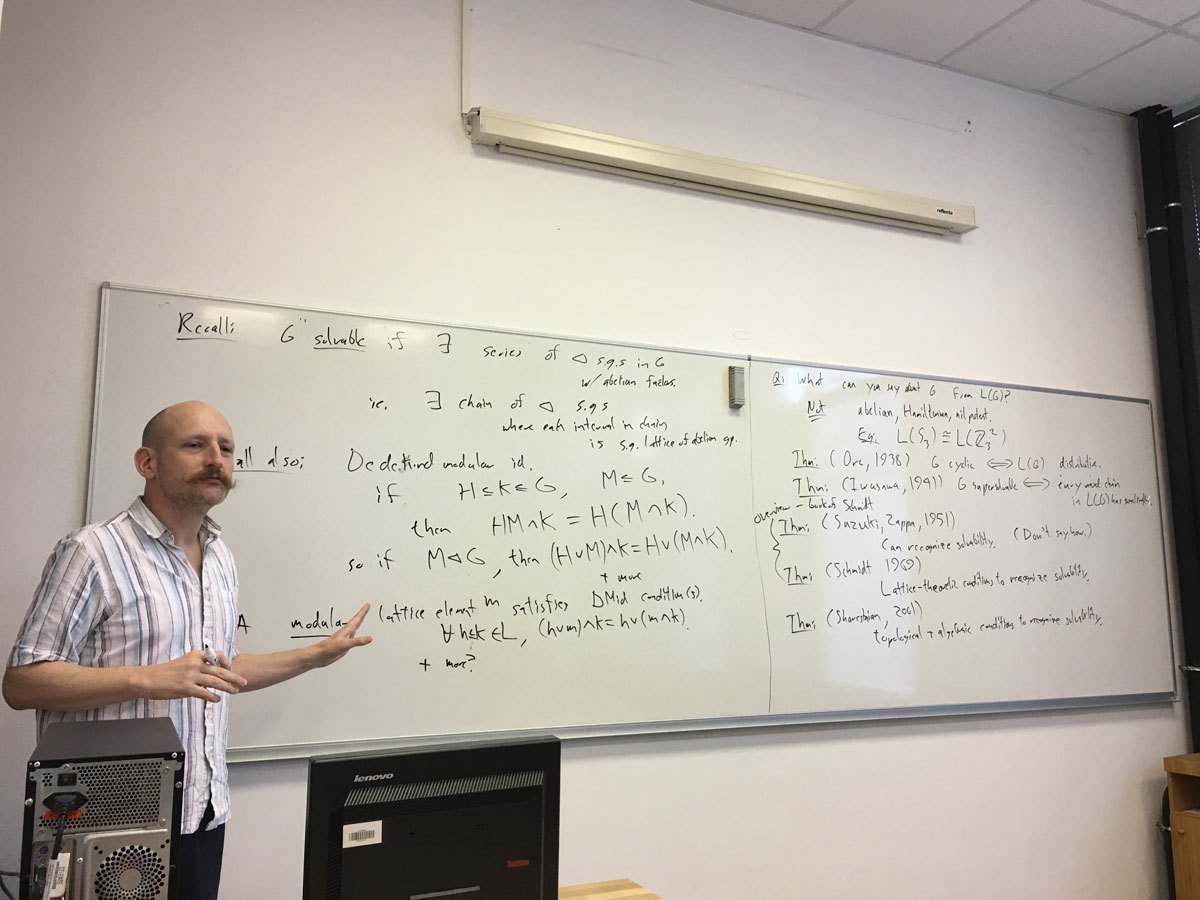 Recall: G "solvable if ∃ series of ◁ s.g.s in G
w/ abelian factors.
i.e. ∃ chain of ◁ s.g.s
where each interval in chain
is s.g. lattice of abelian gp.
all also: Dedekind modular id.
if H≤K≤G, M≤G,
then HM∩K = H(M∩K).
so if M◁G, then (H∨M)∧K=H∨(M∧K).
+ more
A modular lattice element m satisfies DMid condition(s).
∀h≤k∈L, (h∨m)∧k=h∨(m∧k).
+ more?
Q: What can you say about G from L(G)?
Not abelian, Hamiltonian, nilpotent.
Eg: L(S₃) ≅ L(ℤ₃²)
Thm: (Ore, 1938) G cyclic ⟺ L(G) distributive.
Thm: (Iwasawa, 1941) G supersolvable ⟺ every maxl chain
in L(G) has same length.
overview - book of Schmidt
Thm: (Suzuki, Zappa, 1951)
Can recognize solvability. (Don't say how.)
Thm: (Schmidt 1969)
Lattice-theoretic conditions to recognize solvability.
Thm: (Shareshian, 2001)
topological + algebraic conditions to recognize solvability.
reflecta
lenovo
ThinkVision